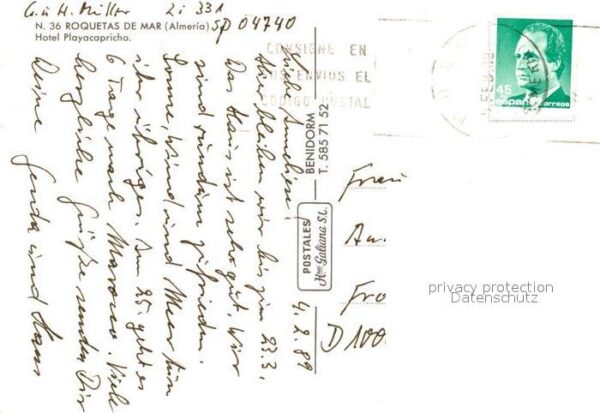 G. u H. Müller Zi 331
N. 36 ROQUETAS DE MAR (Almería)
SP 04740
Hotel Playacapricho.
4.2.89
Liebe Annelies!
Hier bleiben wir bis zum 23.3.
Das Haus ist sehr gut. Wir
sind rundum zufrieden.
Sonne, Wind und Meer tun
ihr übriges. Am 25. geht es
6 Tage nach Marocco. Viele
herzliche Grüße senden Dir
Deine Gerda und Hans
BENIDORM
T. 585 71 52
POSTALES
Hnos Galiana S.L.
CONSIGNE EN
SUS ENVIOS EL
CODIGO POSTAL
FEB
45
españa correos
Frau
An
Fro
D 100
privacy protection
Datenschutz